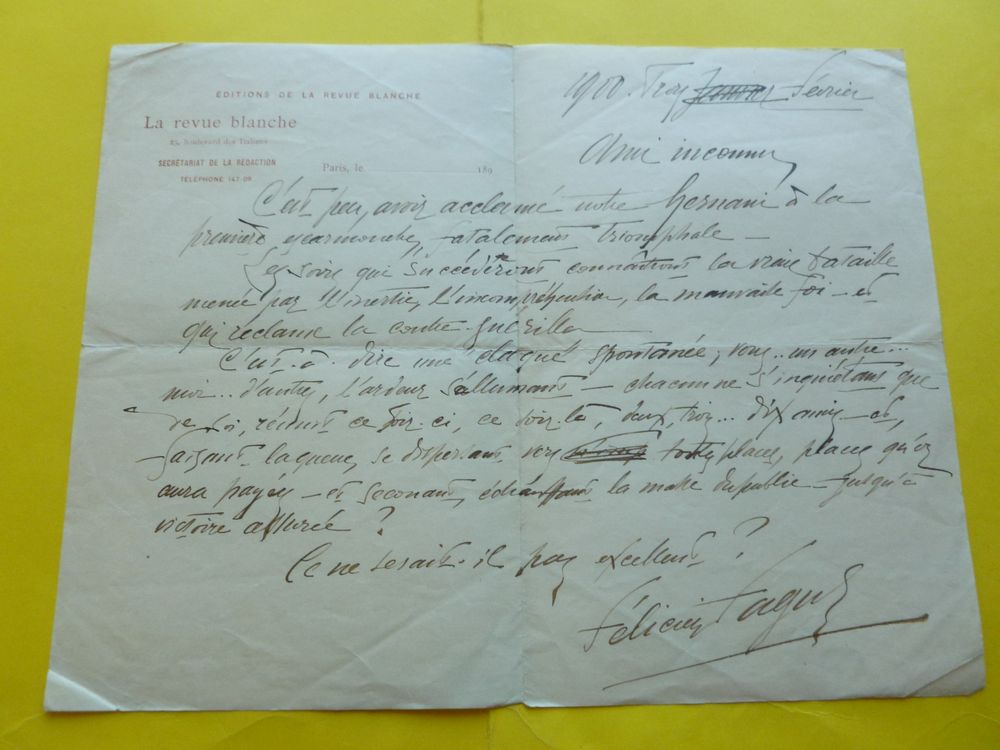 EDITIONS DE LA REVUE BLANCHE
La revue blanche
23, boulevard des Italiens
SECRÉTARIAT DE LA RÉDACTION
TÉLÉPHONE 147-09
Paris, le 189
1900. Trois Février
Ami inconnu,
C'est peu, avoir acclamé notre Hernani à la
première escarmouche, fatalement triomphale —
Les soirs qui succéderont connaîtront la vraie bataille
menée par l'inertie, l'incompréhension, la mauvaise foi — et
qui réclame la contre-guérilla
C'est-à-dire une "claque" spontanée; vous.. un autre...
moi.. d'autres, l'ardeur s'allumant — chacun ne s'inquiétant que
de soi, réunit ce soir-ci, ce soir-là, deux, trois... dix amis — et,
faisant la queue, se dispersant vers toutes places, places qu'on
aura payées — et secouant, échauffant la masse du public — jusqu'à
victoire assurée ?
Ce ne serait-il pas excellent ?
Félicien Fagus